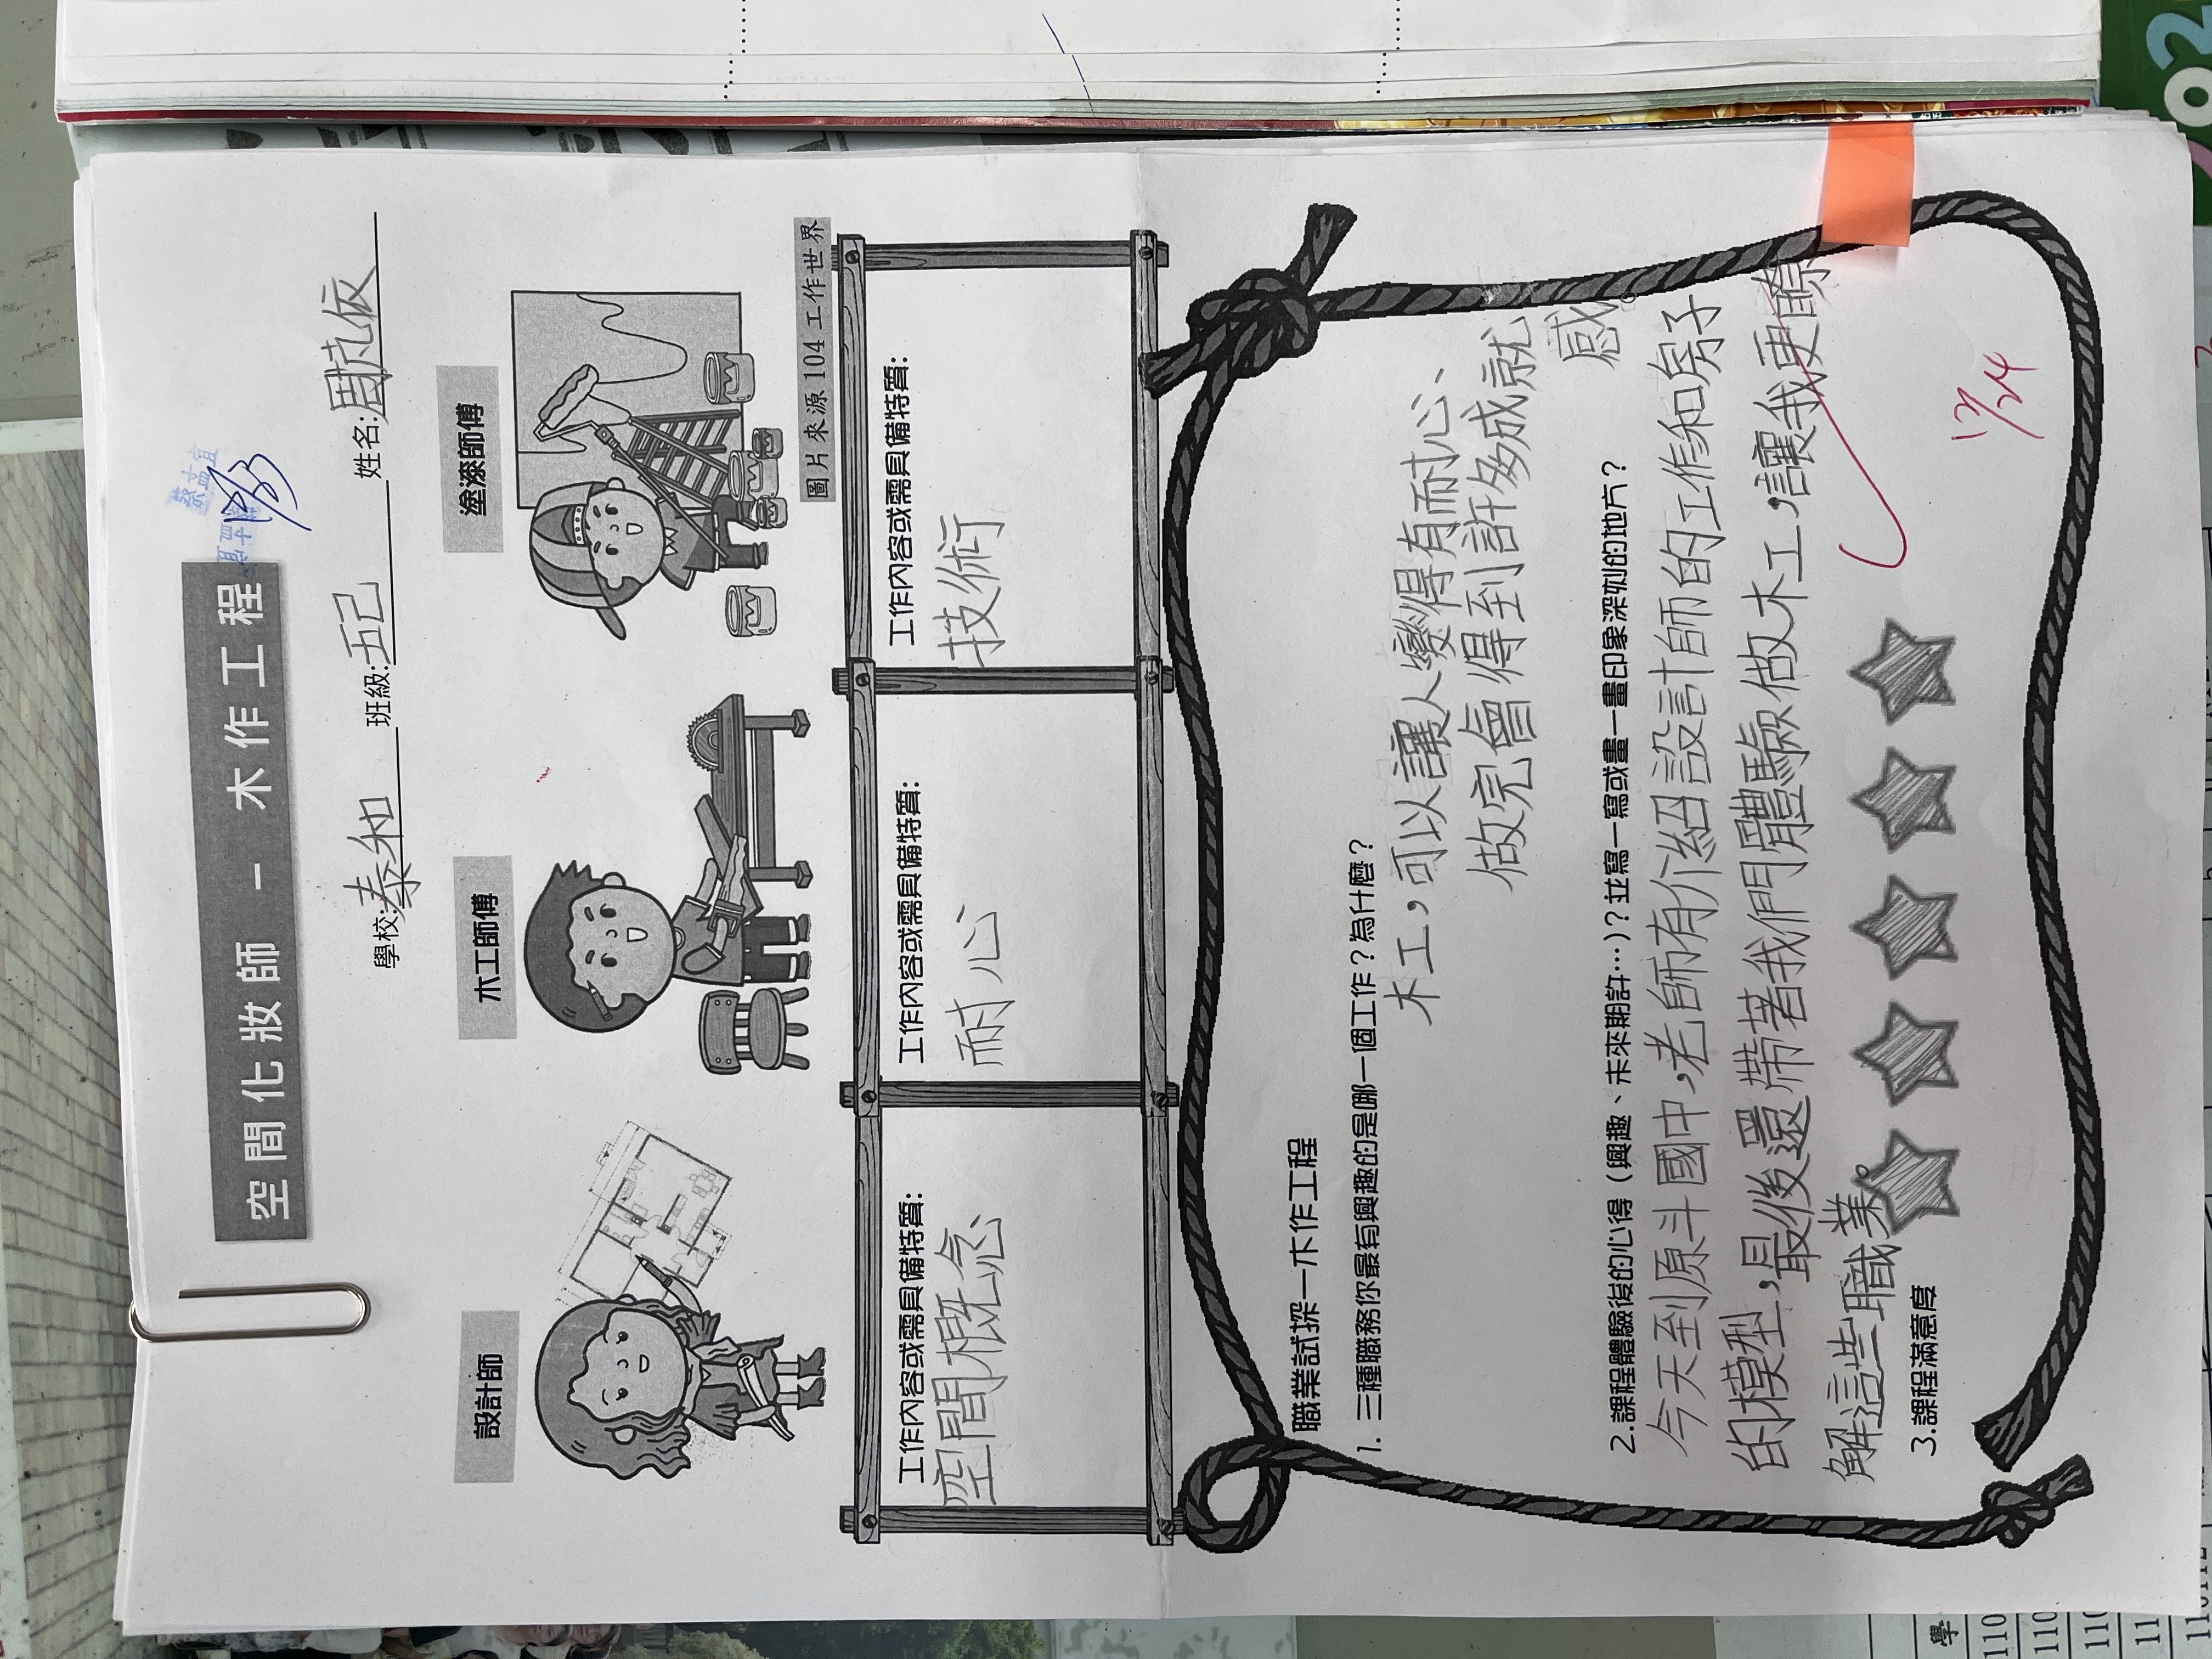 空間化妝師 – 木作工程
學校:泰和 班級:五己 姓名:周芃依
設計師
木工師傅
塗漆師傅
圖片來源104工作世界
工作內容或需具備特質:
空間概念
工作內容或需具備特質:
耐心
工作內容或需具備特質:
技術
職業試探－木作工程
1. 三種職務你最有興趣的是哪一個工作？為什麼？
木工，可以讓人變得有耐心、
做完會得到許多成就
感。
2.課程體驗後的心得（興趣、未來期許…)？並寫一寫或畫一畫印象深刻的地方？
今天到原斗國中，老師有介紹設計師的工作和房子
的模型，最後還帶著我們體驗做木工，讓我更瞭
解這些職業。
3.課程滿意度
12/24